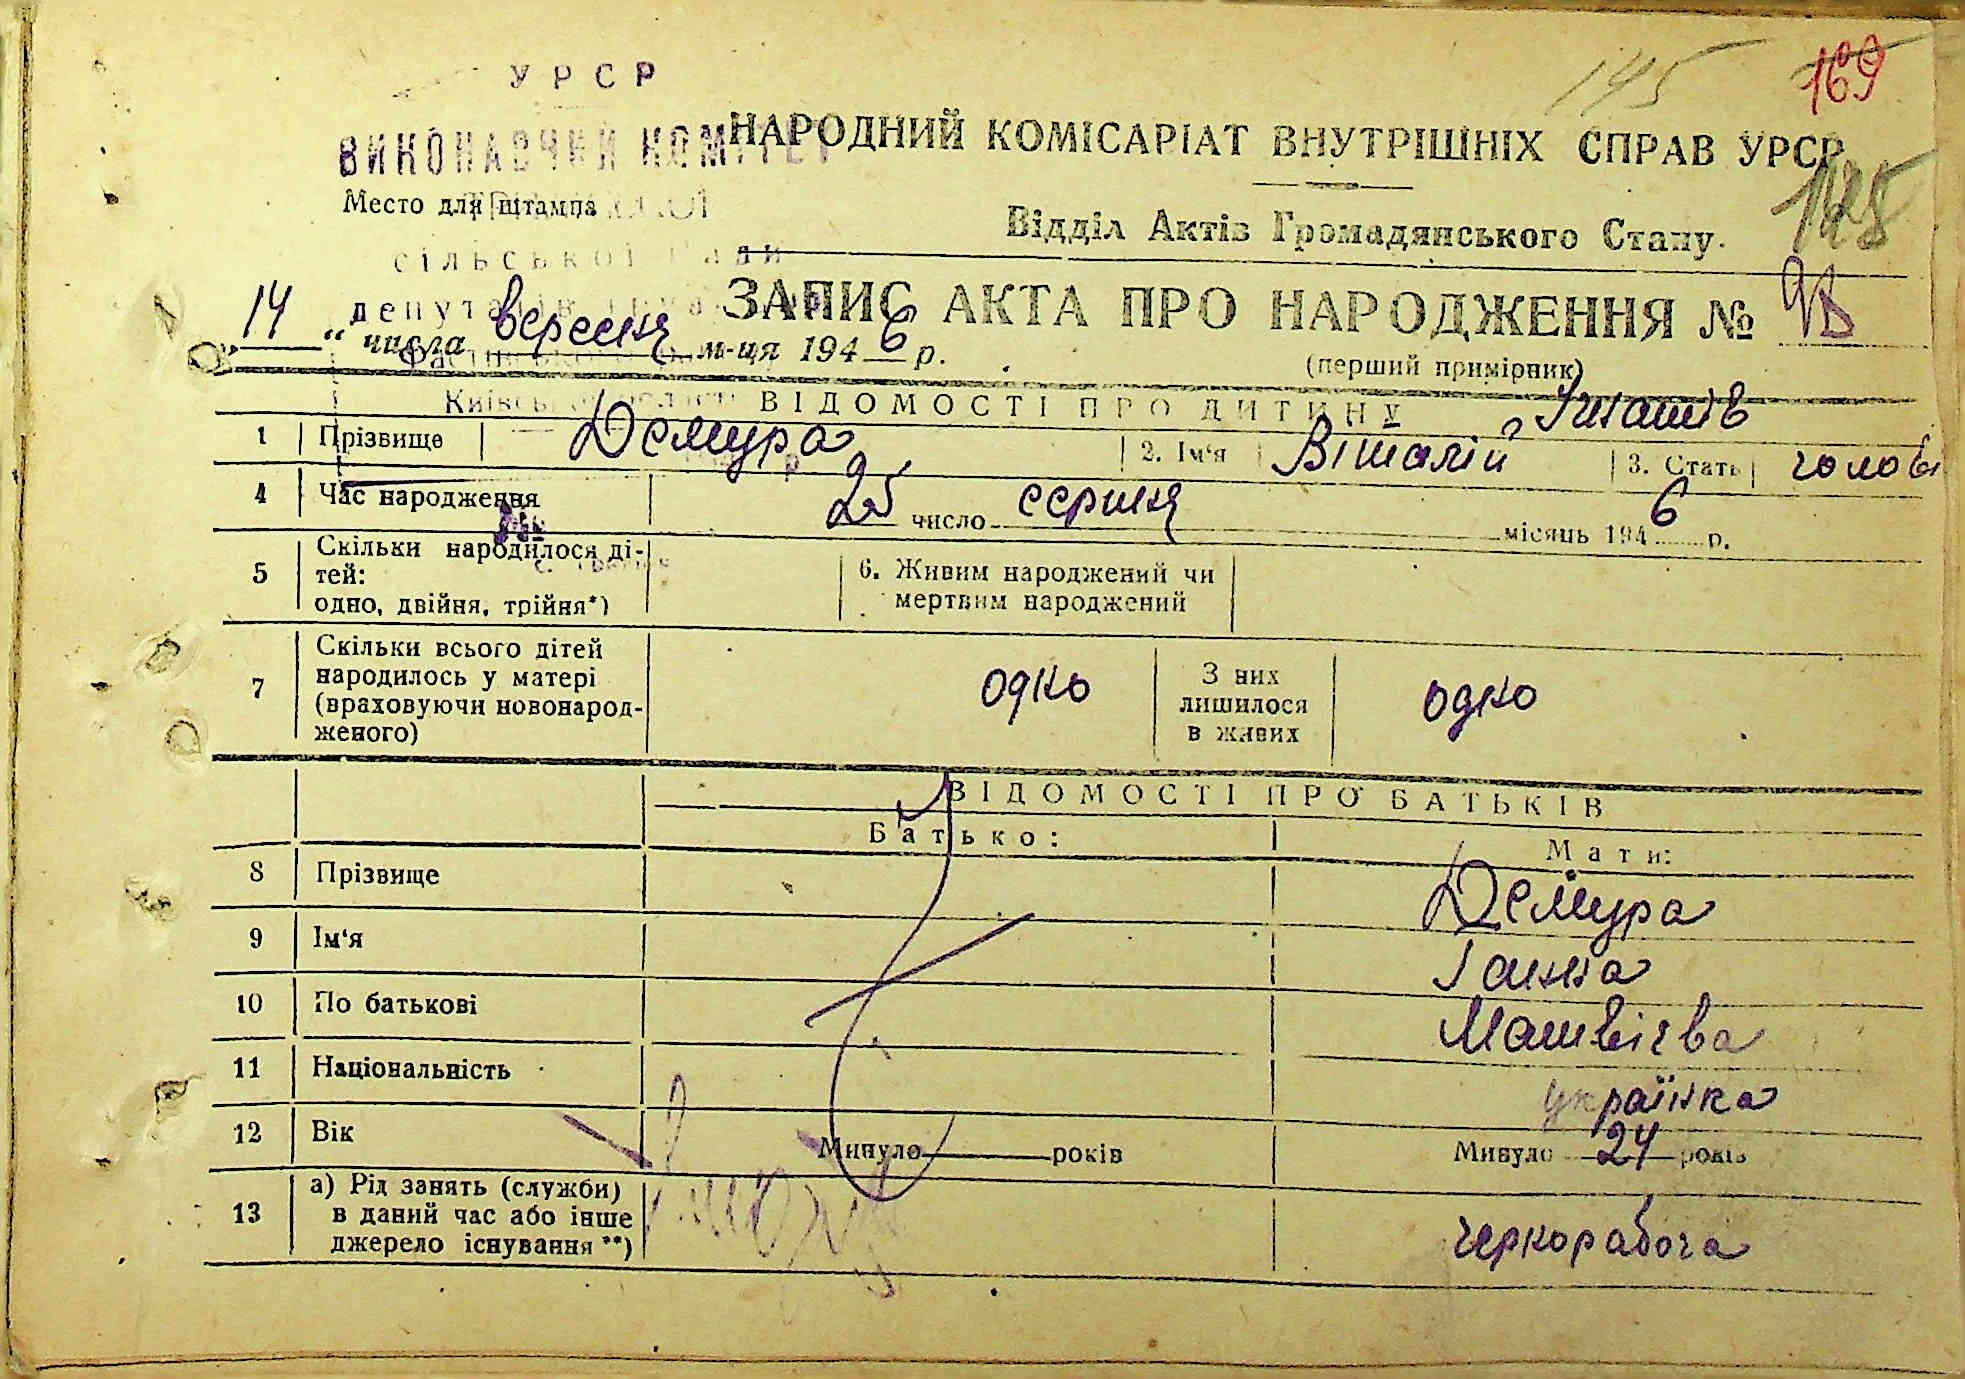 145 169
УРСР
ВИКОНАВЧИЙ КОМІТЕТ
НАРОДНИЙ КОМІСАРІАТ ВНУТРІШНІХ СПРАВ УРСР
Место для штампа
Відділ Актів Громадянського Стану.
сільської Ради
депутатів
ЗАПИС АКТА ПРО НАРОДЖЕННЯ №
„14“ числа вересня м-ця 1946 р.
(перший примірник)
ВІДОМОСТІ ПРО ДИТИНУ
1 Прізвище Демура 2. Ім'я Віталій 3. Стать
4 Час народження 25 число серпня місяць 1946 р.
5 Скільки народилося ді-
тей:
одно, двійня, трійня*)
6. Живим народжений чи
мертвим народжений
7 Скільки всього дітей
народилось у матері
(враховуючи новонарод-
женого)
одно
З них
лишилося
в живих
одно
ВІДОМОСТІ ПРО БАТЬКІВ
Батько: Мати:
8 Прізвище Демура
9 Ім'я Ганна
10 По батькові Матвієва
11 Національність українка
12 Вік Минуло років Минуло 24 років
13 а) Рід занять (служби)
в даний час або інше
джерело існування **)
чернорабоча